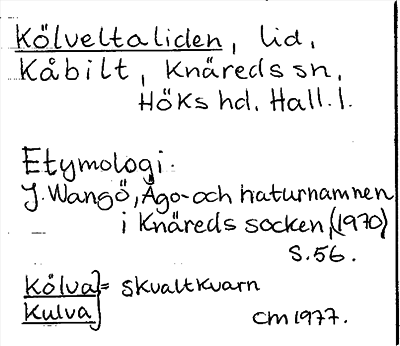 Kölveltaliden, lid,
Kåbilt, Knäreds sn,
Höks hd. Hall. l.
Etymologi:
J. Wangö, Ägo- och naturnamnen
i Knäreds socken, (1970)
s. 56.
Kölva = skvaltkvarn
Kulva
CM 1977.